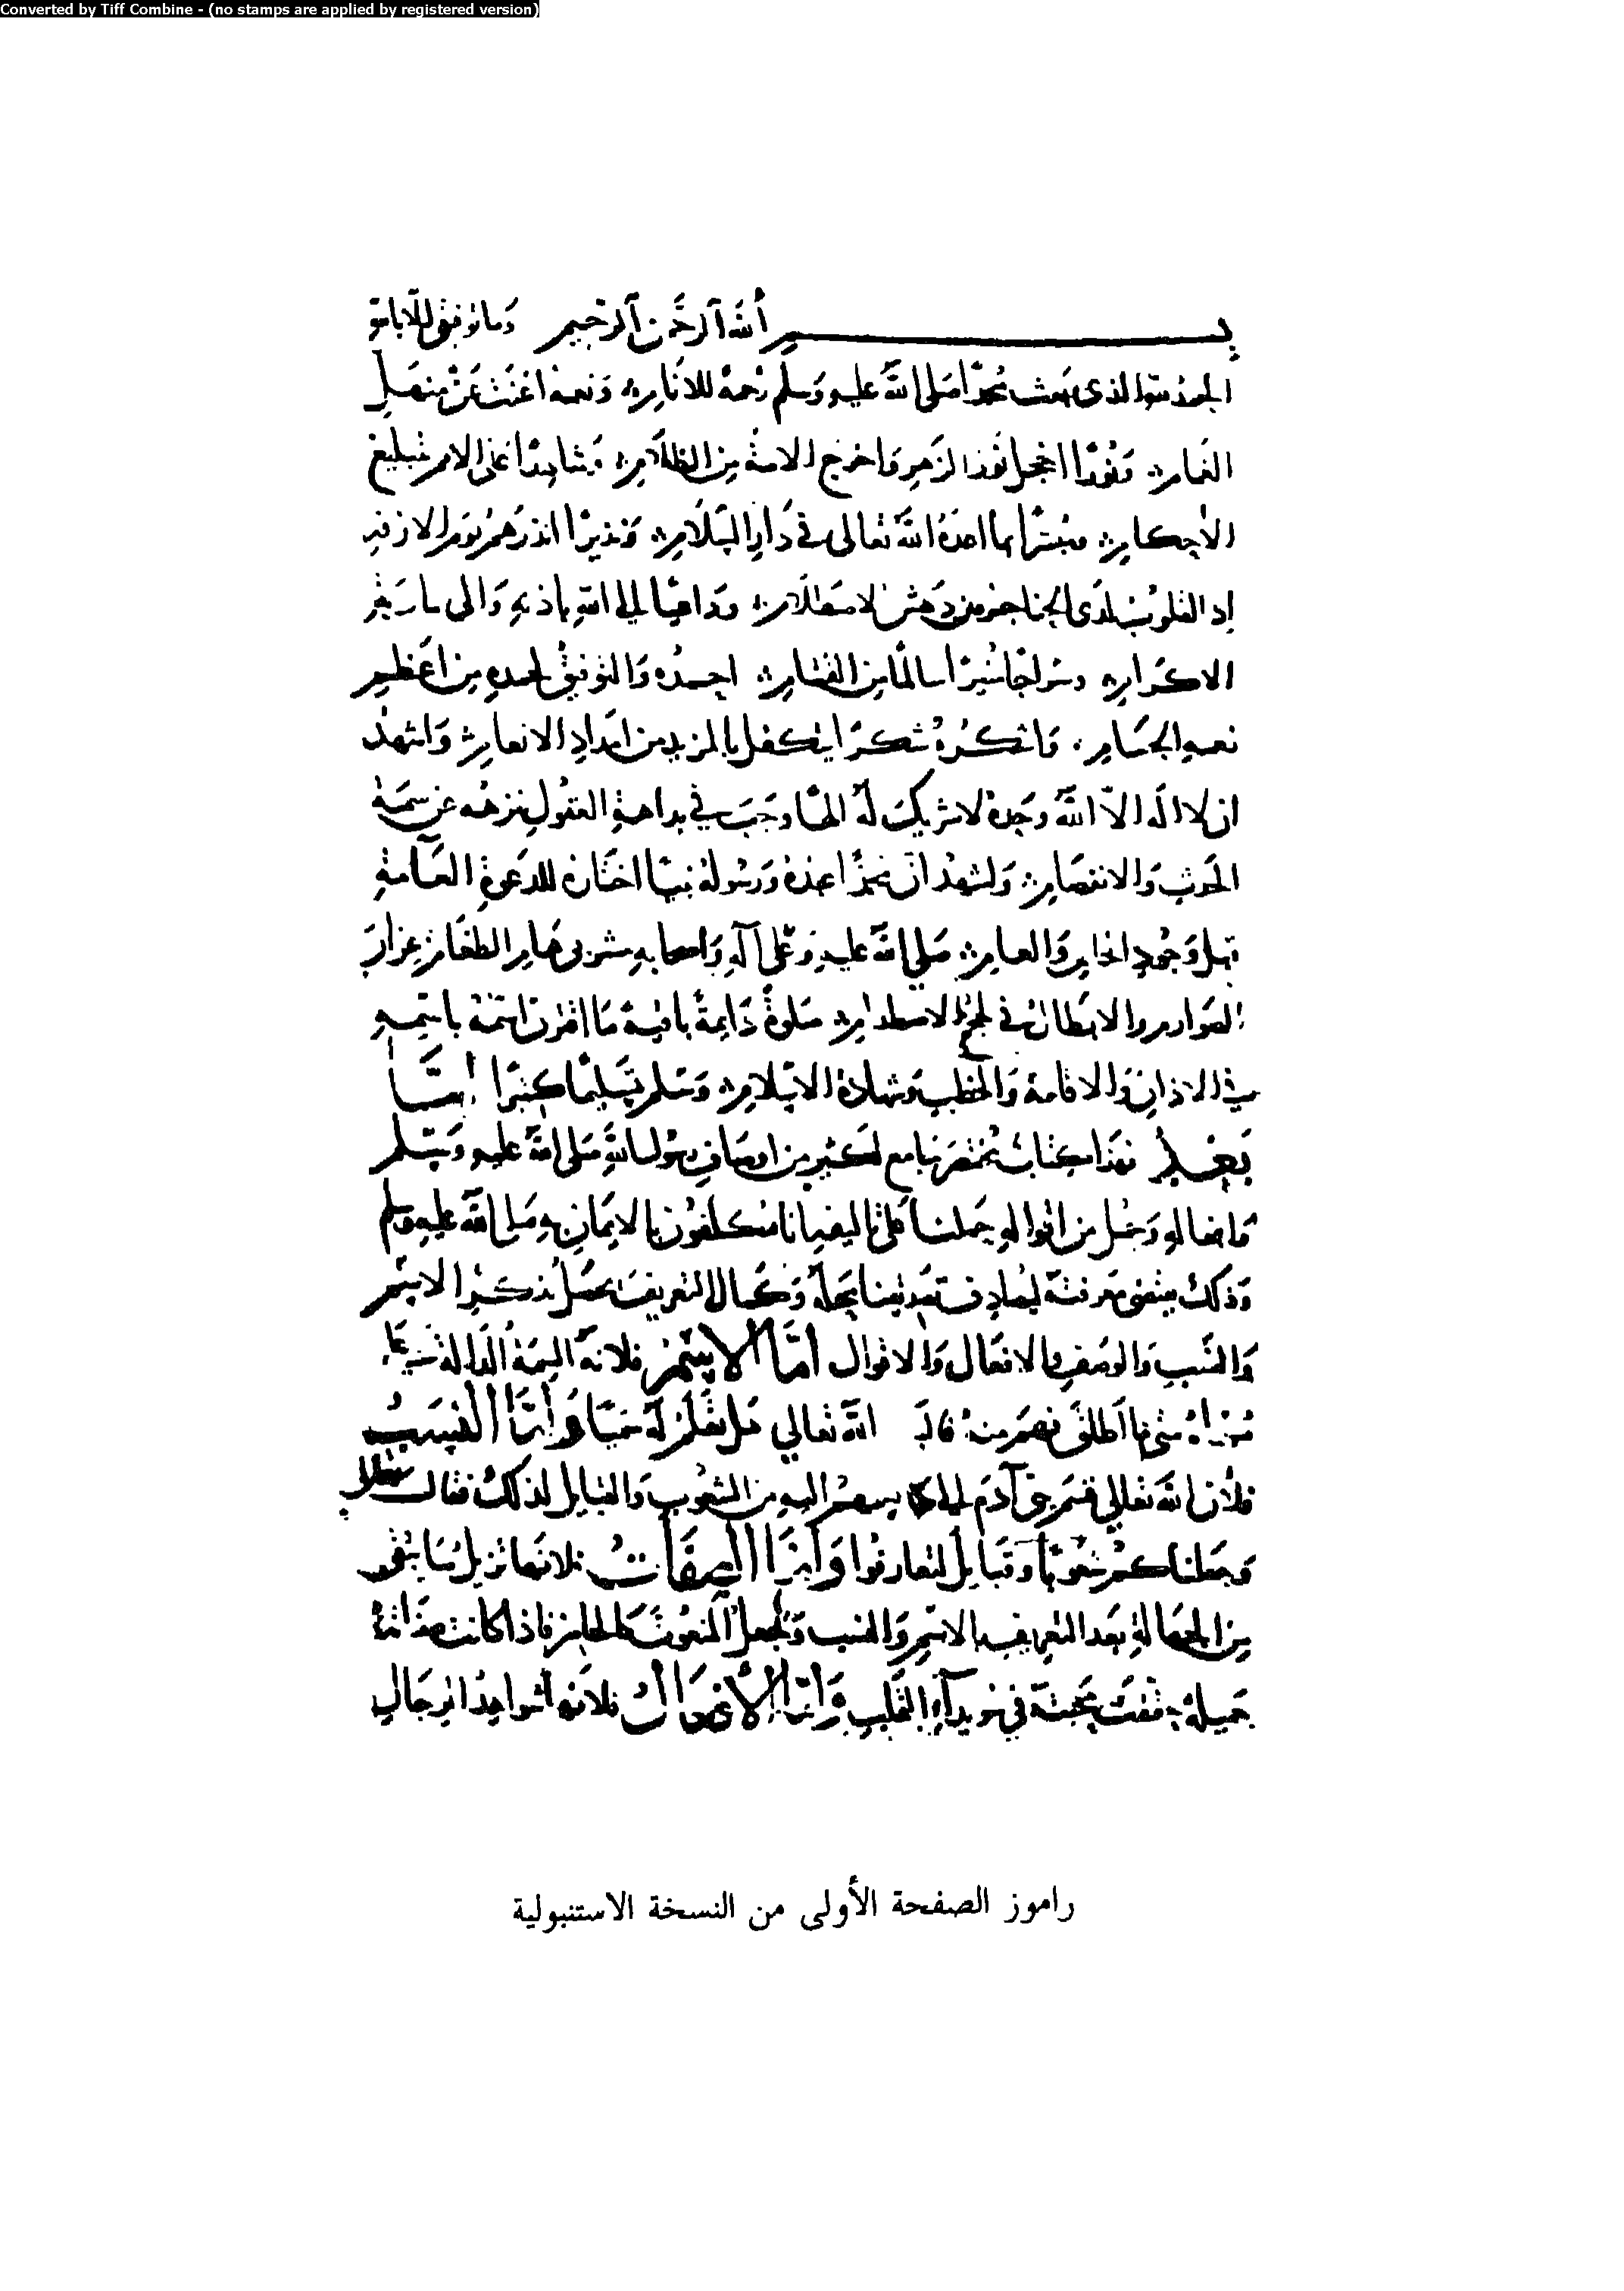 Converted by Tiff Combine - (no stamps are applied by registered version)
بسم الله الرحمن الرحيم وما توفيقي إلا بالله
الحمد لله الذي بعث محمدا صلى الله عليه وسلم رحمة للأنام ونعمة أغنت عن منهل
الغمام ونورا اخجل نور الزهر واخرج الأمة من الظلام وشاهدا على الامر بتبليغ
الأحكام ومبشرا بما اعده الله تعالى في دار السلام ونذيرا انذرهم يوم الازفة
إذ القلوب لدى الحناجر من دهش الاصطلام وداعيا إلى الله بإذنه والى
الاكرام وسراجا منيرا سالما من القتام احمده والتوفيق لحمده من أعظم
نعمه الجسام واشكره شكرا يتكفل بالمزيد من امداد الانعام واشهد
ان لا اله الا الله وحده لا شريك له الها وجب في بداهة العقول تنزهه عن سمة
الحدث والانفصام واشهد ان محمدا عبده ورسوله نبيا اختاره للدعوة العامة
قبل وجود الخاص والعام صلى الله عليه وعلى آله واصحابه
الصوارم والابطال في لجج الاصطدام صلوة دايمة باقية ما اقترن اسمه باسمه
في الاذان والاقامة والخطب وشهادة الاسلام وسلم تسليما كثيرا أمــا
بعد فهذا كتاب مختصر جامع لكثير من اوصاف رسول الله صلى الله عليه وسلم
وافعاله وجمل من اقواله حملنا على تاليفه انا مكلفون بالايمان به صلى الله عليه وسلم
وذلك يقتضي معرفته ليصادف تصديقنا محله وكمال التعريف يحصل بذكر الاسم
والنسب والوصف والافعال والاقوال أما الاسم فلانه السمة الدالة
متى ما اطلق فهم منه قال الله تعالى هل تعلم له سميا وأما النسب
فلأن الله تعالى قسم بني آدم الى من الشعوب والقبايل لذلك فقال تعالى
وجعلناكم شعوبا وقبايل لتعارفوا وأما الصفات فلانها تزيل ما بقي
من الجهالة بعد التعريف بالاسم والنسب وتجعل المنعوت كالحاضر فاذا كانت صفاته
جميلة وقعت محبته في سويداء القلب وأما الأفعال فلانها شواهد الرجال
راموز الصفحة الأولى من النسخة الاستنبولية